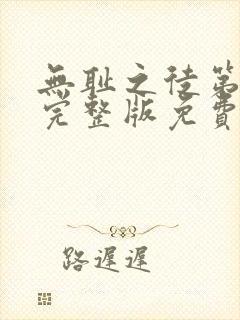 無耻之徒第
完整版免費
路遲遲